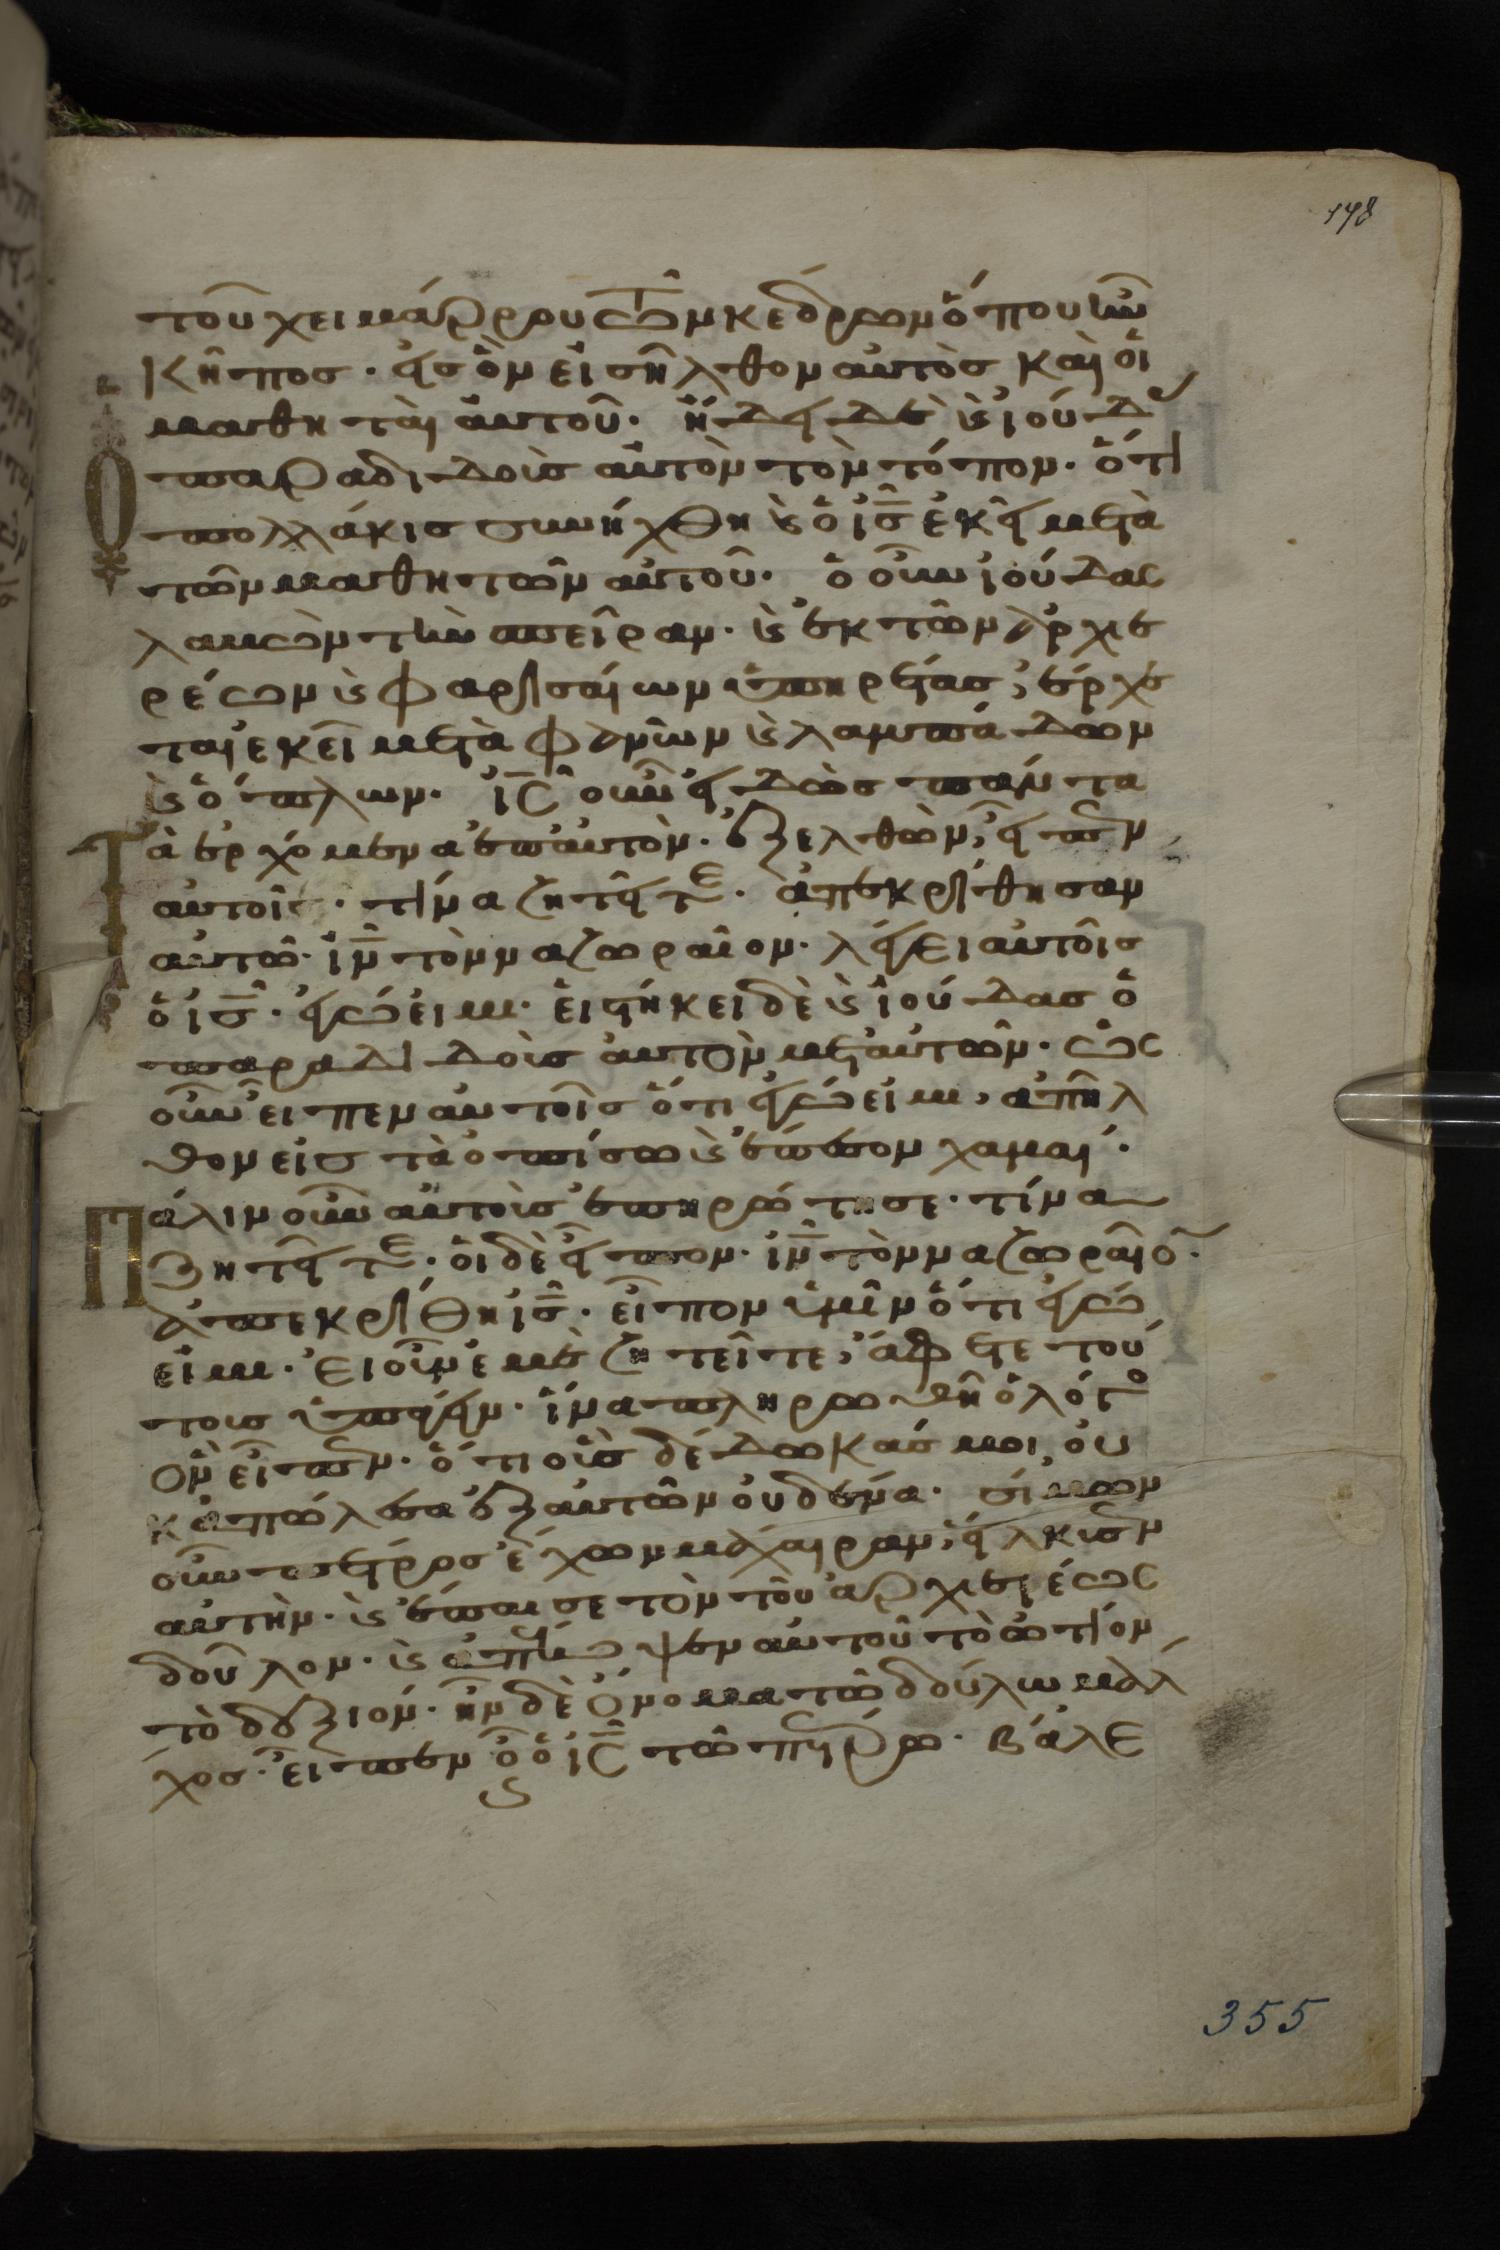 148
τοῦ χειμάρρου τῶν κεδρων ὅπου ἦν
κῆπος. εἰς ὃν εἰσῆλθον αὐτὸς καὶ οἱ
μαθηταὶ αὐτοῦ. ἤδει δὲ ϗ ἰούδ
παραδιδοὺς αὐτὸν τὸν τόπον. ὅτι
πολλάκις συνήχθη ϗ ὁ ις ἐκεῖ μετὰ
τῶν μαθητῶν αὐτοῦ. ὁ οὖν ἰούδας
λαβὼν τὴν σπεῖραν. ϗ ἐκ τῶν ἀρχιε
ρέων ϗ φαρισαίων ὑπηρέτας, ἔρχε
ται ἐκεῖ μετὰ φανῶν ϗ λαμπάδων
ϗ ὅπλων. ις οὖν εἰδὼς πάντα
τὰ ἐρχόμενα ἐπ αὐτὸν. ἐξελθὼν, εἶπεν
αὐτοῖς. τίνα ζητεῖτε. ἀπεκρίθησαν
αὐτῶ. ιν τὸν ναζωραῖον. λέγει αὐτοῖς
ὁ ις. ἐγώ εἰμι. εἱστήκει δὲ ϗ ἰούδας ὁ
παραδιδοὺς αὐτὸν μετ αὐτῶν. ὡς
οὖν εἶπεν αὐτοῖς ὅτι ἐγώ εἰμι, ἀπῆλ
θον εἰς τὰ ὀπίσω ϗ ἔπεσον χαμαί.
Πάλιν οὖν αὐτοὺς ἐπηρώτησε. τίνα
ζητεῖτε. οἱ δὲ εἶπον. ιν τὸν ναζωραῖο
ἀπεκρίθη ις. εἶπον ὑμῖν ὅτι ἐγώ
εἰμι. εἰ οὖν ἐμὲ ζητεῖτε, ἄφετε τού
τους ὑπάγειν. ἵνα πληρωθῆ ὁ λόγο
ὃν εἶπεν. ὅτι οὓς δέδωκάς μοι, οὐ
κ ἀπώλεσα ἐξ αὐτῶν οὐδένα. σίμων
οὖν πέτρος ἔχων μάχαιραν, εἵλκισεν
αὐτὴν. ϗ ἔπαισε τὸν τοῦ ἀρχιερέως
δοῦλον. ϗ ἀπέκοψεν αὐτοῦ τὸ ὠτίον
τὸ δεξιόν. ἦν δὲ ὄνομα τῶ δούλω μάλ
χος. εἶπεν οὖν ὁ ις τῶ πέτρω. βάλε
355